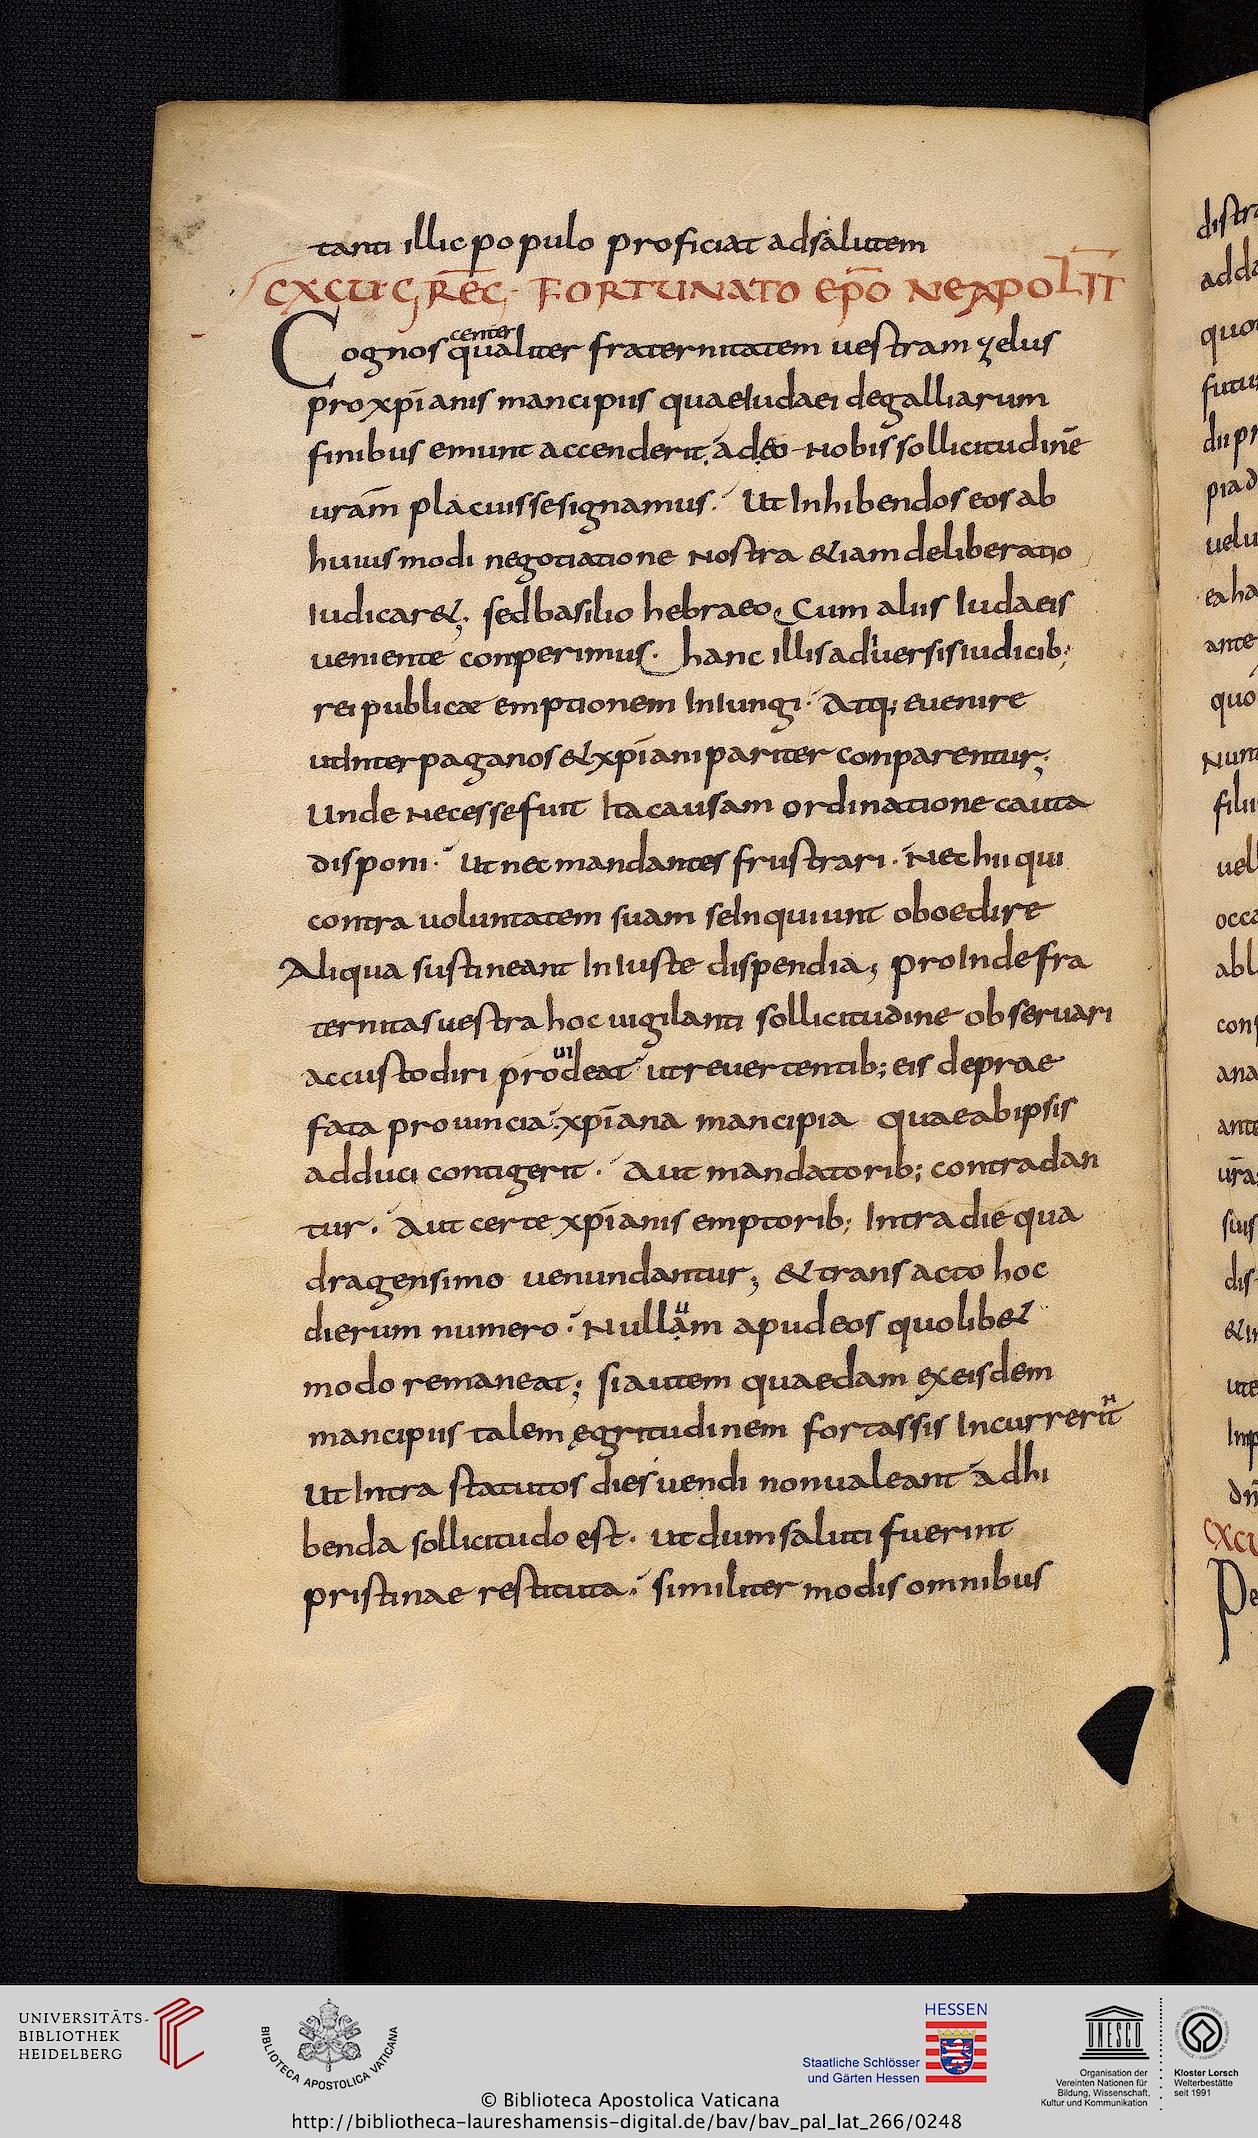 tanti illic populo proficiat adsalutem
CXCVI GREG· FORTUNATO EPŌ NEAPOLIT̄
Cognos qualiter fraternitatem uestram zelus
center
pro xp̄ianis mancipiis quae Iudaei degalliarum
finibus emunt accenderit. adeo Nobis sollicitudinē
ur̄am placuisse signamus. Ut Inhibendos eos ab
huiusmodi negotiatione Nostra &iam deliberatio
Iudicar&; sed basilio hebraeo Cum aliis Iudaeis
ueniente conperimus. hanc illis aduersis iudicib;
rei publicae emptionem Iniungi. Atq; euenire
utInter paganos & xp̄iani pariter conparentur;
Unde Necesse fuit Ita causam ordinatione cauta
disponi. Ut nec mandantes frustrari. Nec hii qui
contra uoluntatem suam se Inquiunt oboedire
Aliqua sustineant Iniuste dispendia; proInde fra
ternitas uestra hoc uigilanti sollicitudine obseruari
ac custodiri prodeat ut reuertentib; eis de prae
ui
fata prouincia. xp̄iana mancipia quae ab ipsis
adduci contigerit. Aut mandatorib; contradan
tur. Aut certe xp̄ianis emptorib; Intra die qua
dragensimo uenundantur; & transacto hoc
dierum numero. Nullam apud eos quolib&
u
modo remaneat; si autem quaedam ex eisdem
mancipiis talem ęgritudinem fortassis Incurrerit
n
Ut Intra statutos dies uendi non ualeant adhi
benda sollicitudo est. ut dum saluti fuerint
pristinae restituta. similiter modis omnibus
distra
adda
quo
futu
dii pr
pia d
uelu
ea ha
ante
quo
Nunt
filii
uel
occa
abl
cons
ana
ante
ur̄a
suis
dis
&in
ute
Imp
dn̄
CXCV
Pe
UNIVERSITÄTS-
BIBLIOTHEK
HEIDELBERG
BIBLIOTECA APOSTOLICA VATICANA
HESSEN
Staatliche Schlösser
und Gärten Hessen
UNESCO
Organisation der
Vereinten Nationen für
Bildung, Wissenschaft,
Kultur und Kommunikation
Kloster Lorsch
Welterbestätte
seit 1991
© Biblioteca Apostolica Vaticana
http://bibliotheca-laureshamensis-digital.de/bav/bav_pal_lat_266/0248